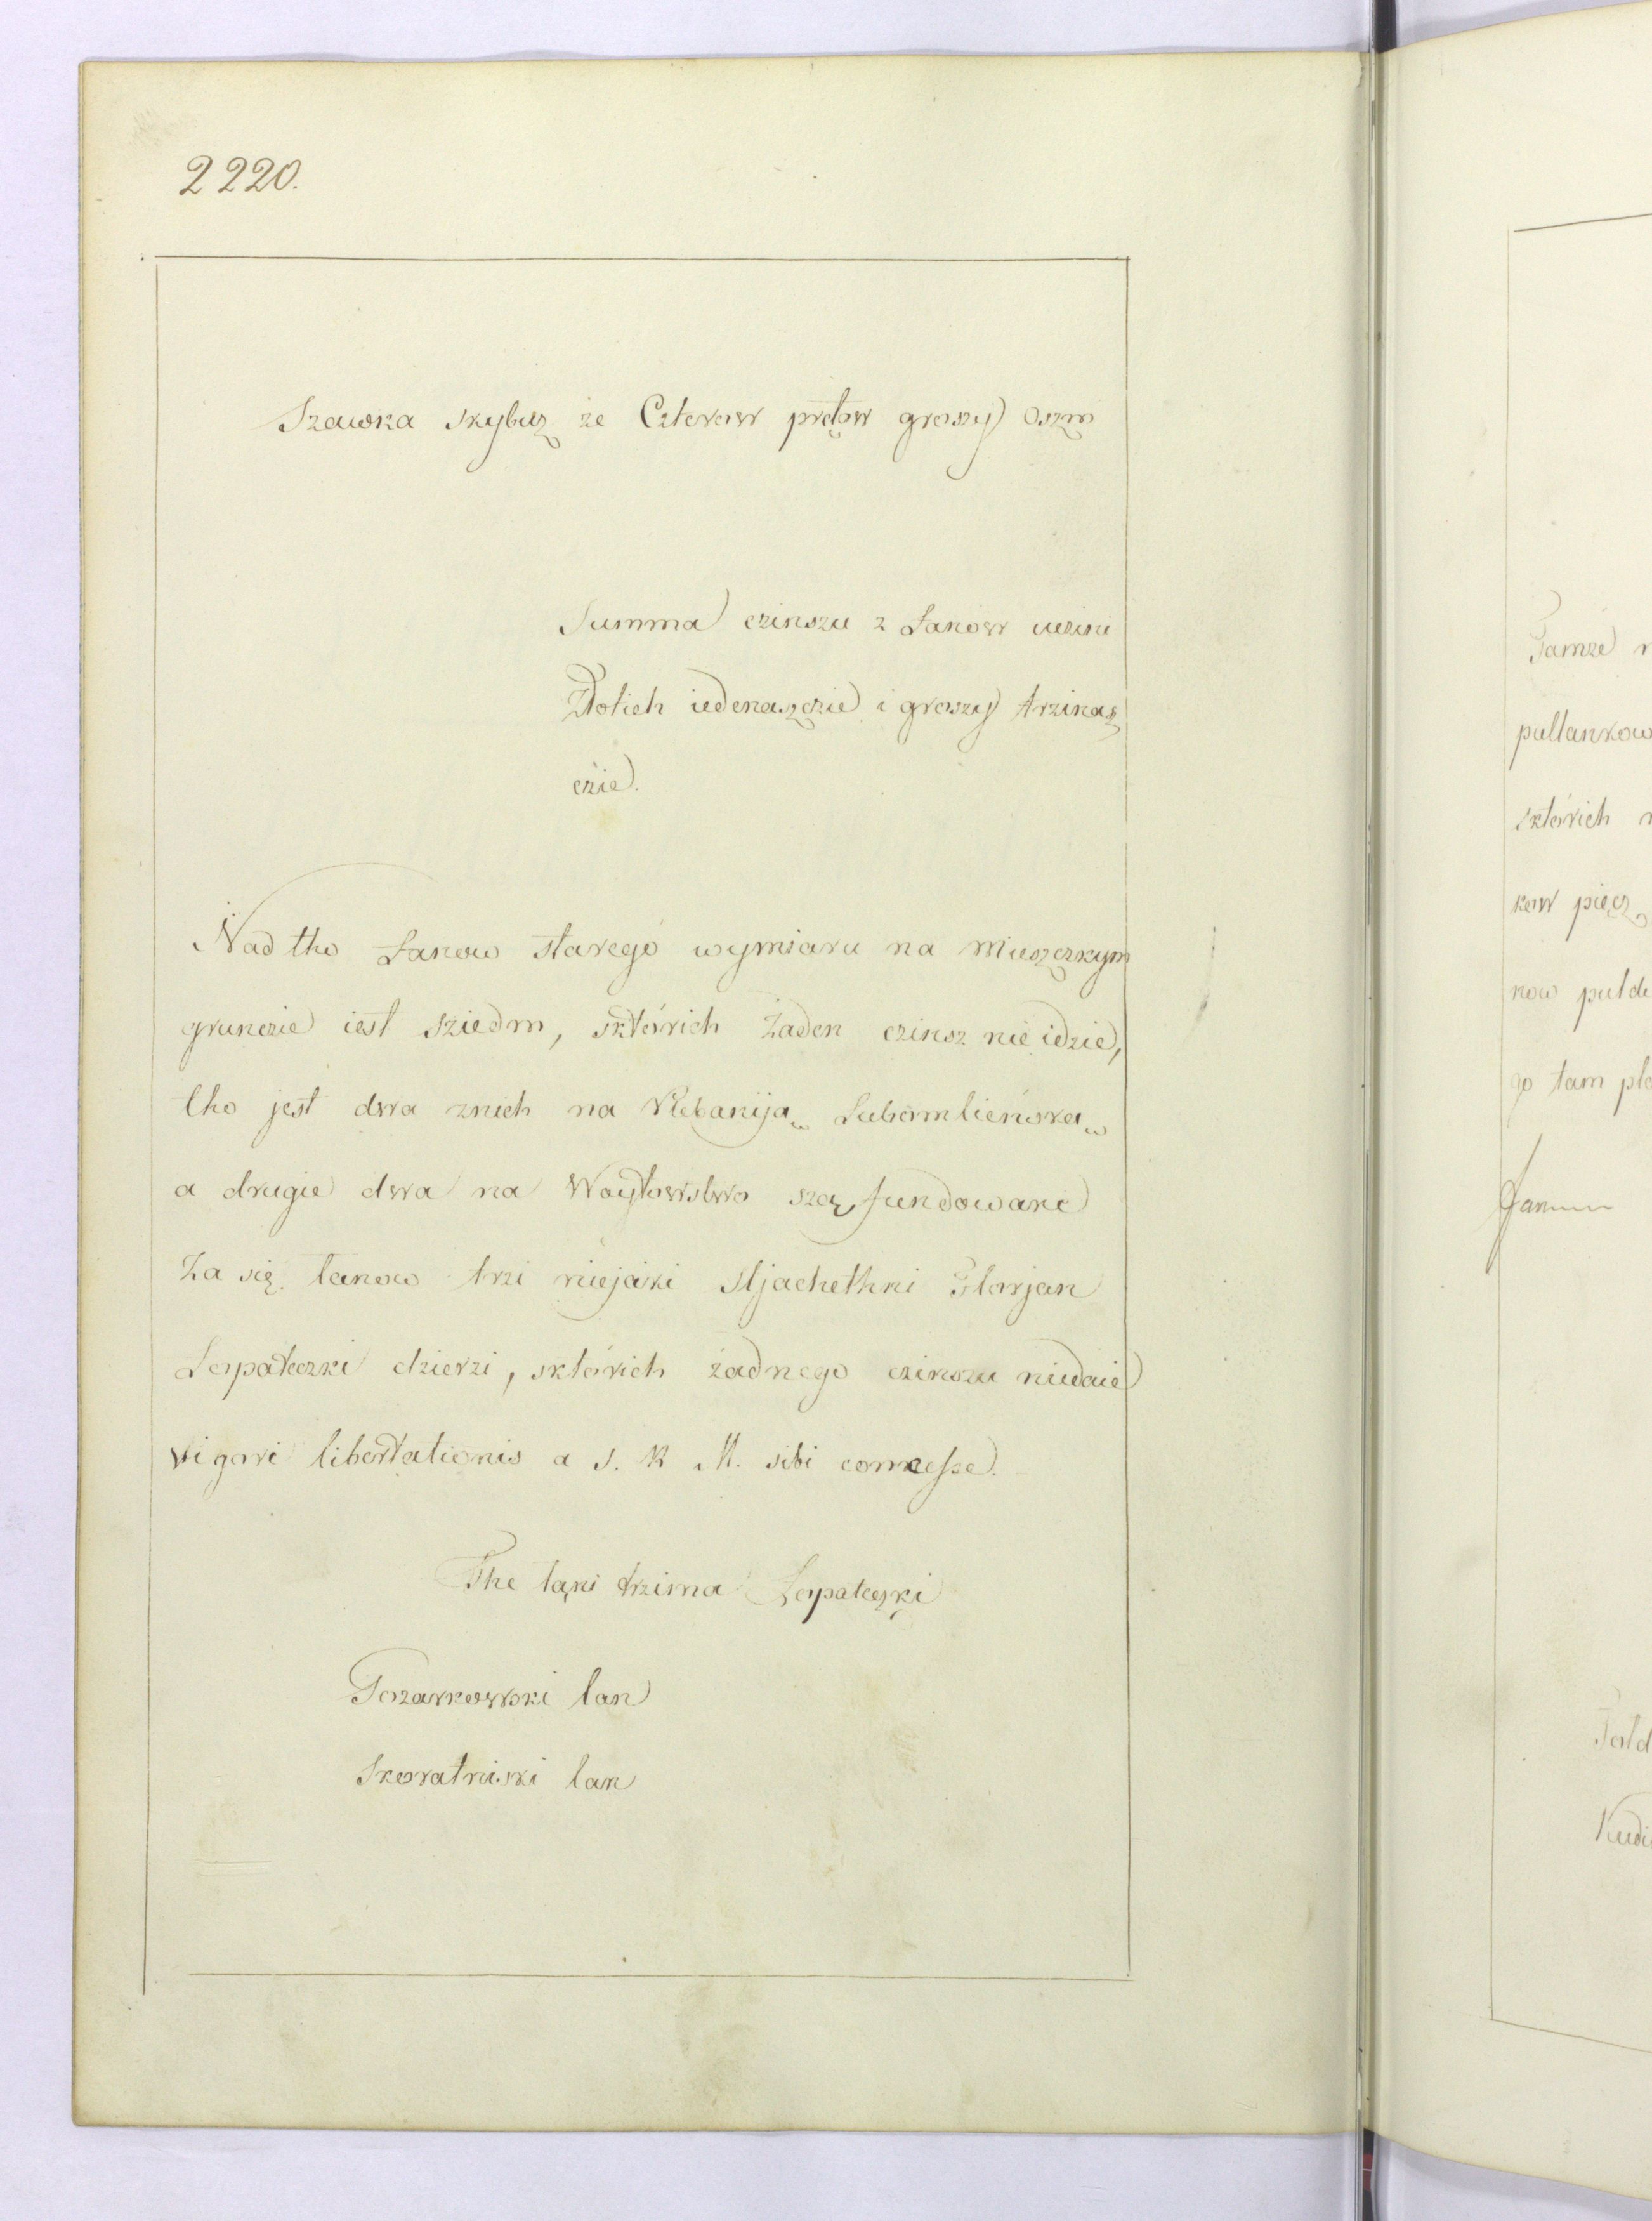 2220.
Szawka Skybicz ze Czterow prętow groszy oszm
Summa czinszu z Łanow uczini
Złotich iedenaszczie i groszy trzinasz
czie.
Nad tho Łanow starego wymiaru na Mieszczkym
gruncie iest sziedm, sktórich Żaden czinsz nie idzie,
tho jest dwa znich na Plebaniją Lubomlieńską
a drugie dwa na Woytowstwo szą fundowane
Za się łanow trzi niejaki Sljachethni Florjan
Łepateczki dzierzi, sktórich żadnego czinszu niedaie
vigori libertationis a S. K M. sibi concesse.
The łąki trzima Łepateczki
łan
łan
Tamże
pullankow
sktórich
kow pięcz
now
go tam